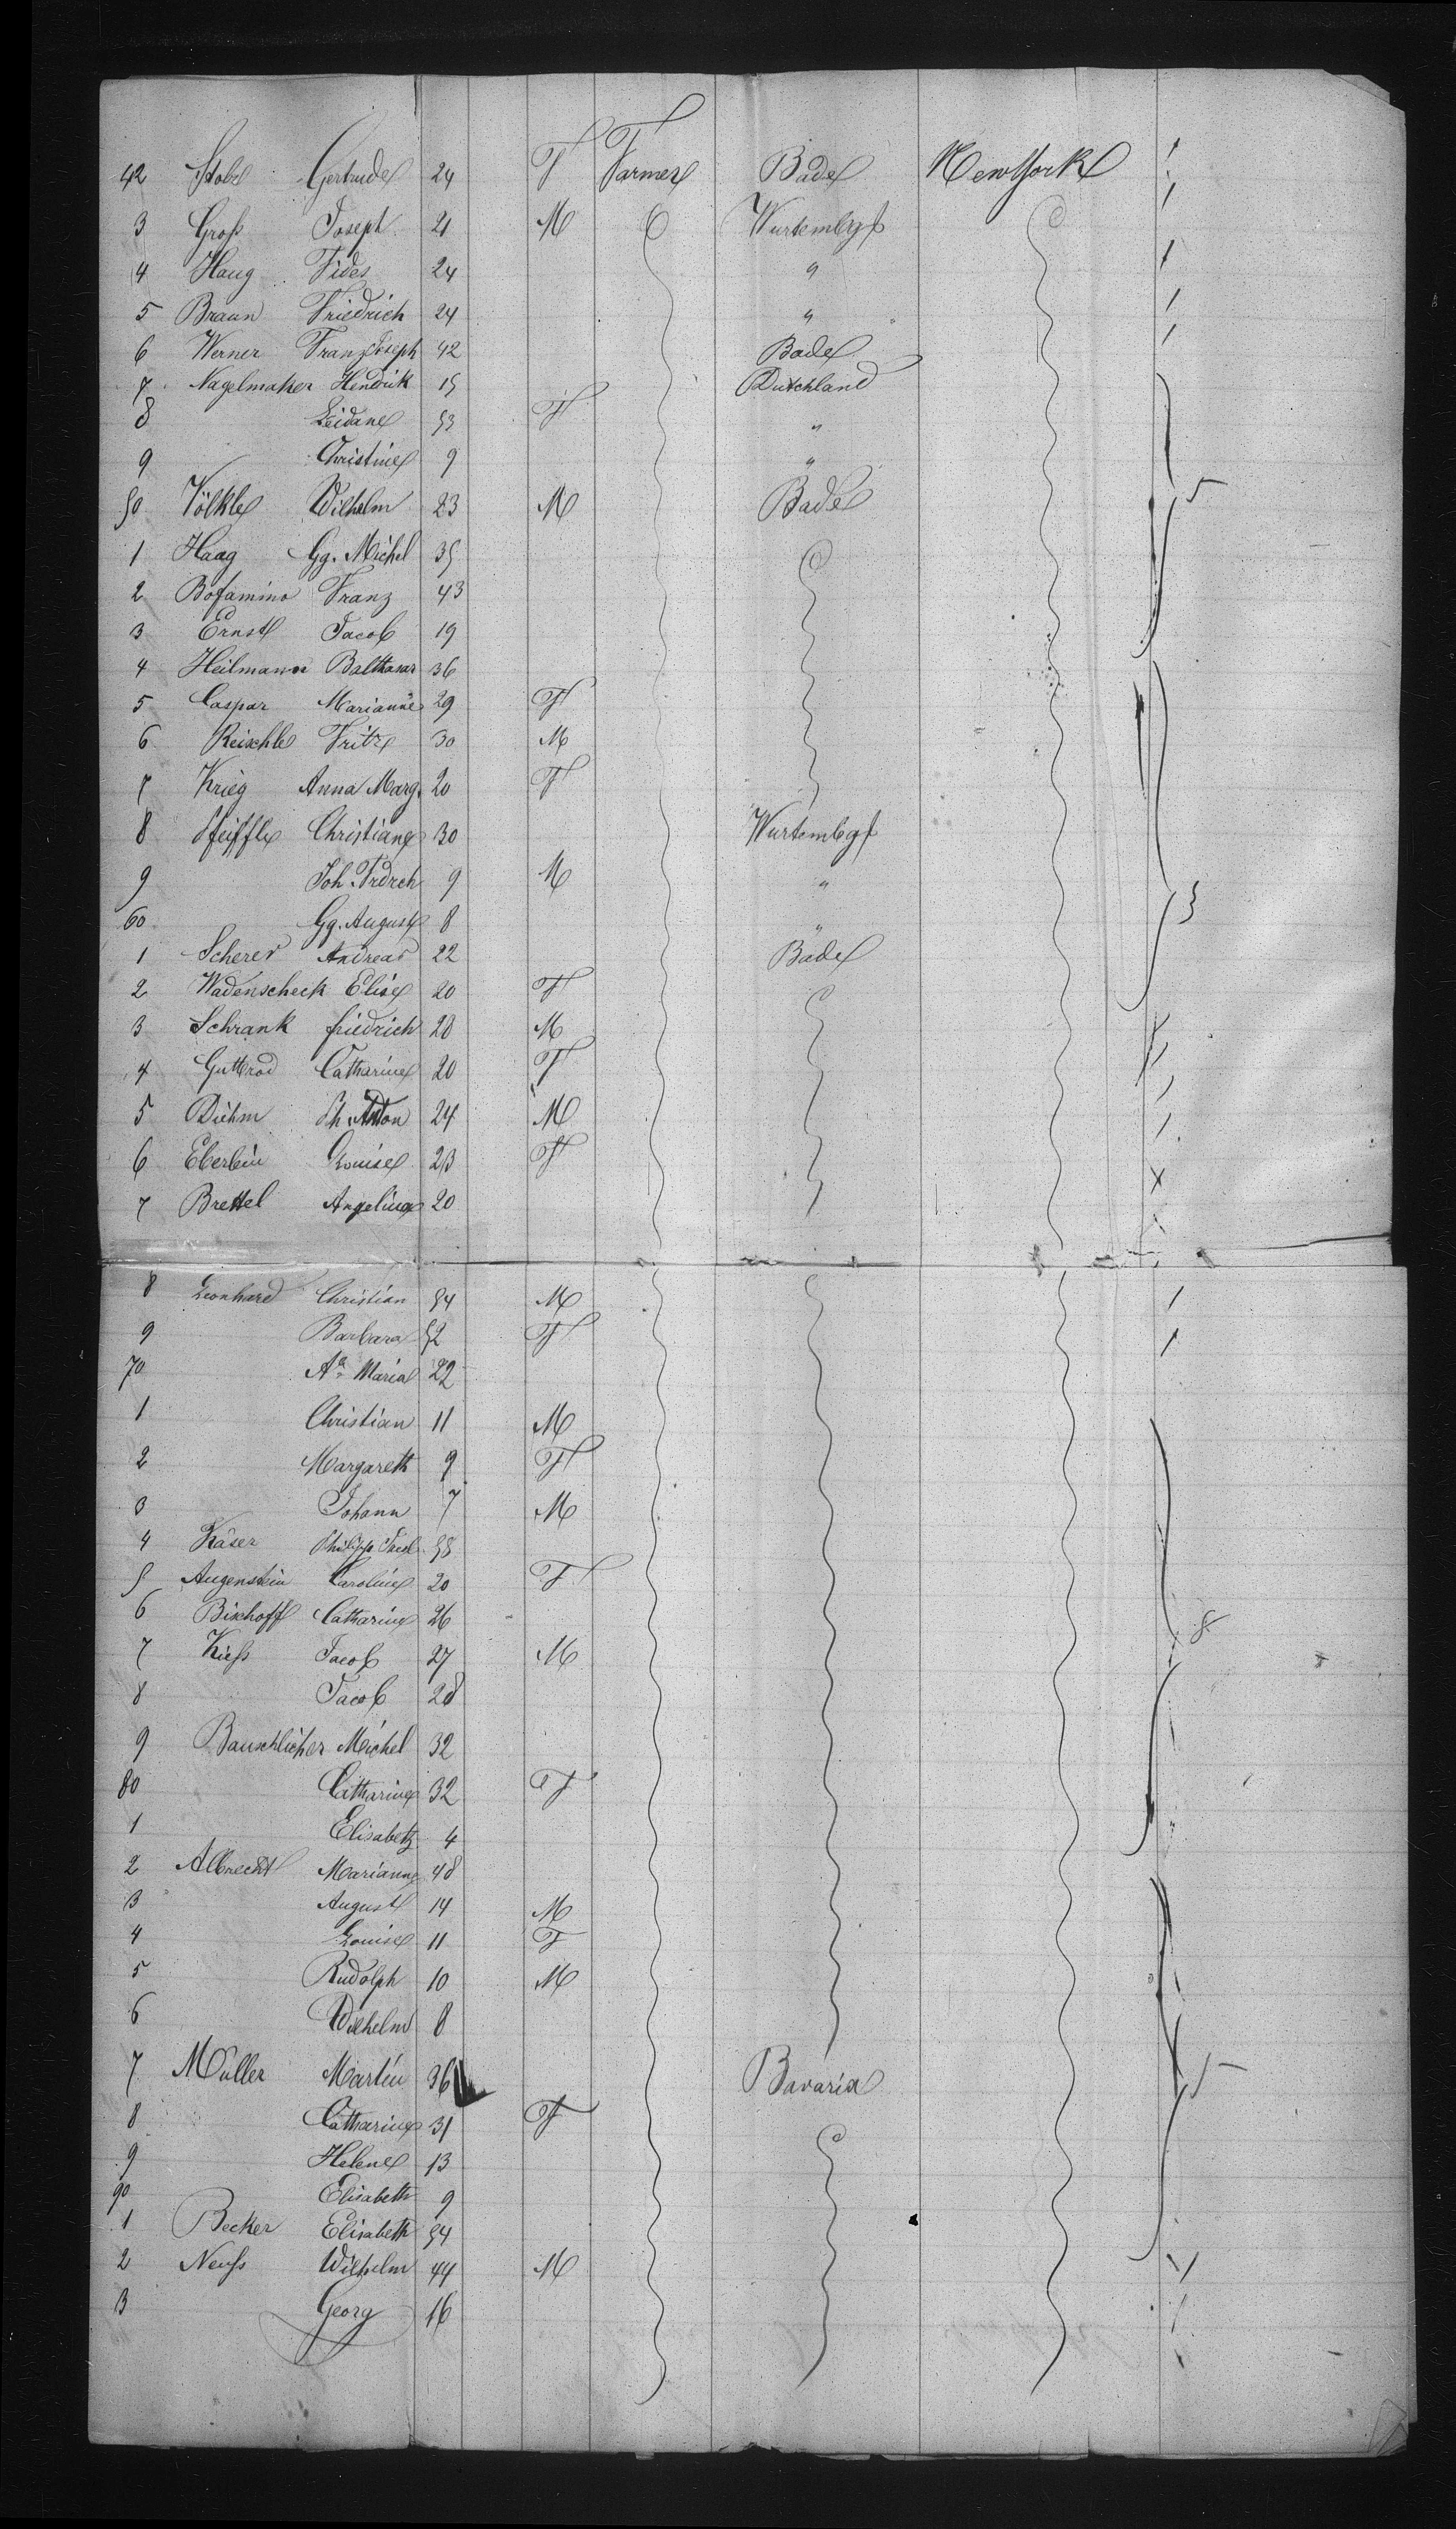 42 Stobe Gertrude 24 F Farmer Bade New York
3 Groß Joseph 21 M Wurtembgf
4 Haug Fides 24 "
5 Braun Friedrich 24 "
6 Werner Franz Joseph 42 Bade
7 Nagelmaker Hendrik 15 Dutchland
8 Leidane 53 F "
9 Christine 9 "
50 Völkle Wilhelm 23 M Bade 5
1 Haag Gg. Michel 35
2 Bofamino Franz 43
3 Ernst Jacob 19
4 Heilmann Balthasar 36
5 Caspar Marianne 29 F
6 Reischle Fritz 30 M
7 Krieg Anna Marg. 20 F
8 Pfeiffle Christiane 30 Wurtembgf
9 Joh. Frdrch 9 M "
60 Gg. August 8 " 3
1 Scherer Andreas 22 Bade
2 Wadenscheck Elise 20 F
3 Schrank friedrich 28 M
4 Gutterod Catharine 20 F
5 Diehm Ph. Anton 24 M
6 Eberlein Louise 23 F
7 Brettel Angelina 20
8 Leonhard Christian 54 M
9 Barbara 52 F
70 Aª Maria 22
1 Christian 11 M
2 Margareth 9 F
3 Johann 7 M
4 Käser Philipp Jacob 55
5 Augenstein Caroline 20 F
6 Bischoff Catharine 26
7 Kieß Jacob 27 M 8
8 Jacob 28
9 Bauschlicher Michel 32
80 Catharine 32 F
1 Elisabeth 4
2 Albrecht Marianne 48
3 August 14 M
4 Louise 11 F
5 Rudolph 10 M
6 Wilhelm 8
7 Müller Martin 36 Bavaria 5
8 Catharine 31 F
9 Helene 13
90 Elisabeth 9
1 Becker Elisabeth 54
2 Neuß Wilhelm 44 M
3 Georg 16